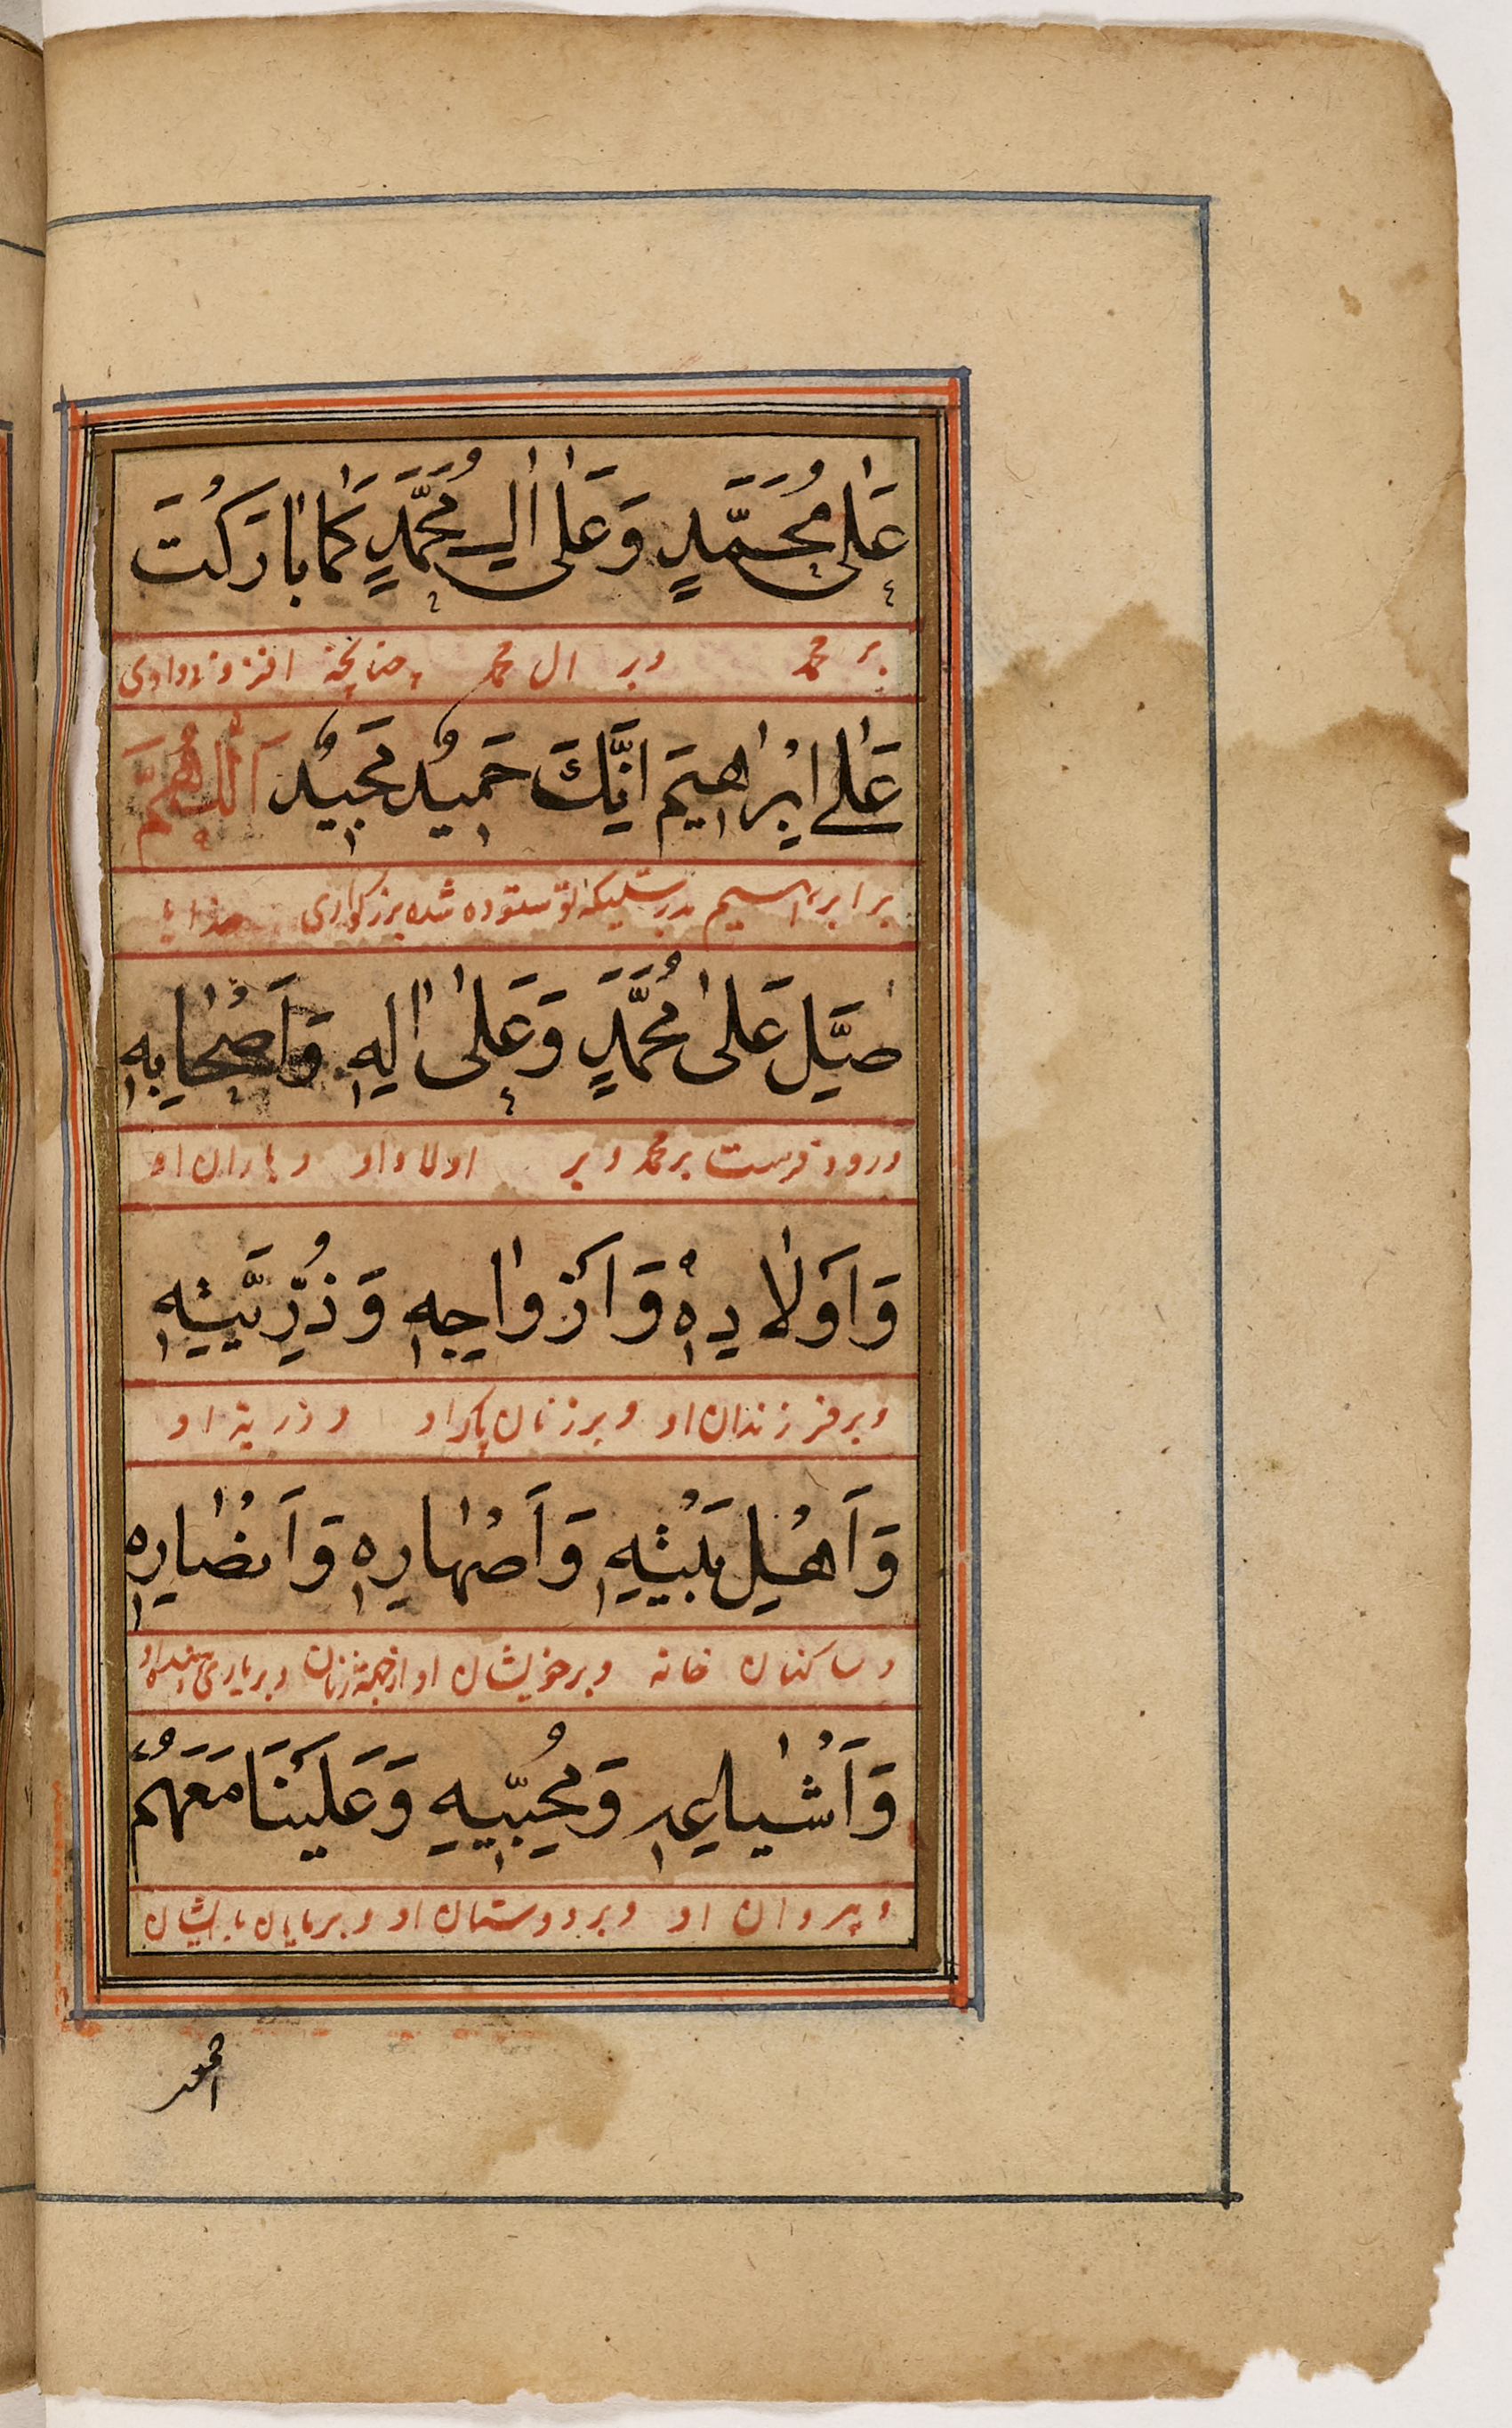 عَلٰى مُحَمَّدٍ وَعَلٰى اٰلِ مُحَمَّدٍ كَمَا بَارَكْتَ
بر محمد وبر ال محمد چنانچه افزونی دادی
عَلٰى اِبْرَاهِيمَ اِنَّكَ حَمِيدٌ مَجِيدٌ اَللّٰهُمَّ
بر ابراهیم بدرستیکه تو ستوده شده بزرکواری خدایا
صَلِّ عَلٰى مُحَمَّدٍ وَعَلٰى اٰلِهِ وَاَصْحَابِهِ
درود فرست بر محمد و بر اولاد او و یاران او
وَاَوْلَادِهِ وَاَزْوَاجِهِ وَذُرِّيَّتِهِ
وبر فرزندان او وبر زنان پاک او و ذریة او
وَاَهْلِ بَيْتِهِ وَاَصْهَارِهِ وَاَنْصَارِهِ
و ساکنان خانه وبر خویشان او از جهة زنان وبر یاری
وَاَشْيَاعِهِ وَمُحِبِّيهِ وَعَلَيْنَا مَعَهُمْ
و پیروان او وبر دوستان او وبر مایان با ایشان